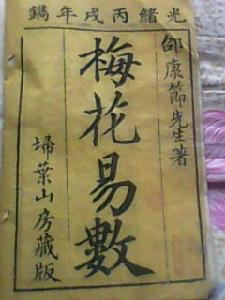 光緒丙戌年鐫
邵康節先生著
梅花易數
掃葉山房藏版